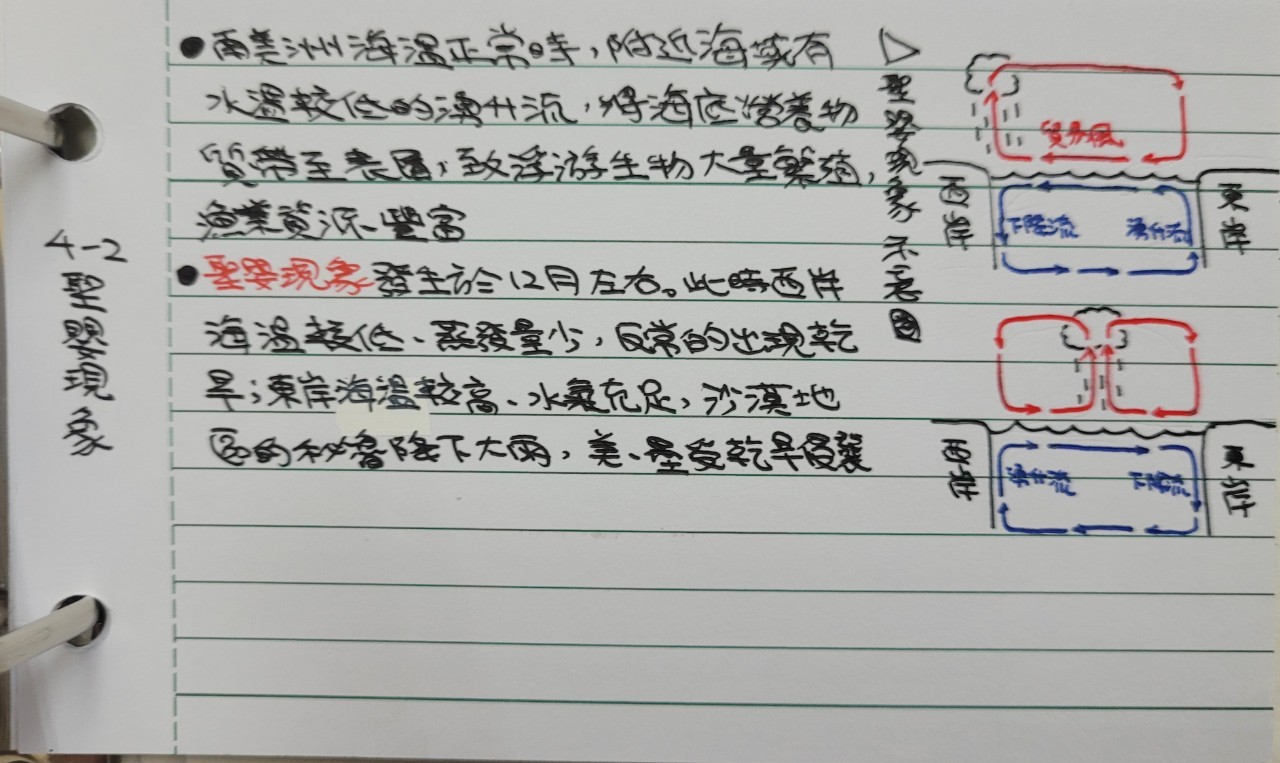 4-2
聖嬰現象
●南美洲海溫正常時，附近海域有
水溫較低的湧升流，將海底營養物
質帶至表面，致浮游生物大量繁殖，
漁業資源豐富
●聖嬰現象發生於12月左右。此時西岸
海溫較低、蒸發量少，反常的出現乾
旱；東岸海溫較高、水氣充足，沙漠地
區的秘魯降下大雨，美、墨受乾旱侵襲
▷聖嬰現象示意圖
貿易風
西岸
東岸
下降流
湧升流
西岸
東岸
湧升流
下降流